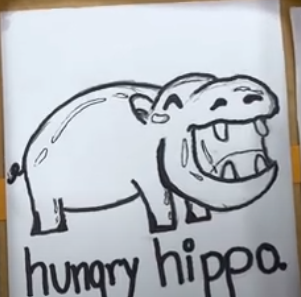 hungry hippo.